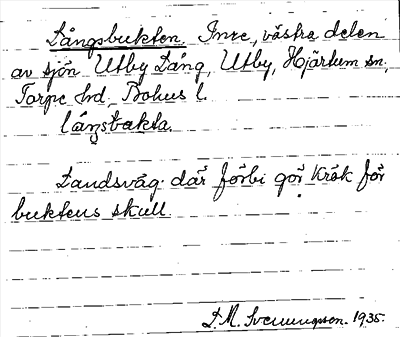 Långsbukten. Inre, västra delen
av sjön Utby Lång, Utby, Hjärtum sn,
Torpe hd, Bohus l.
Landsväg där förbi gör krök för
buktens skull.
L. M. Svenungsson. 1935.